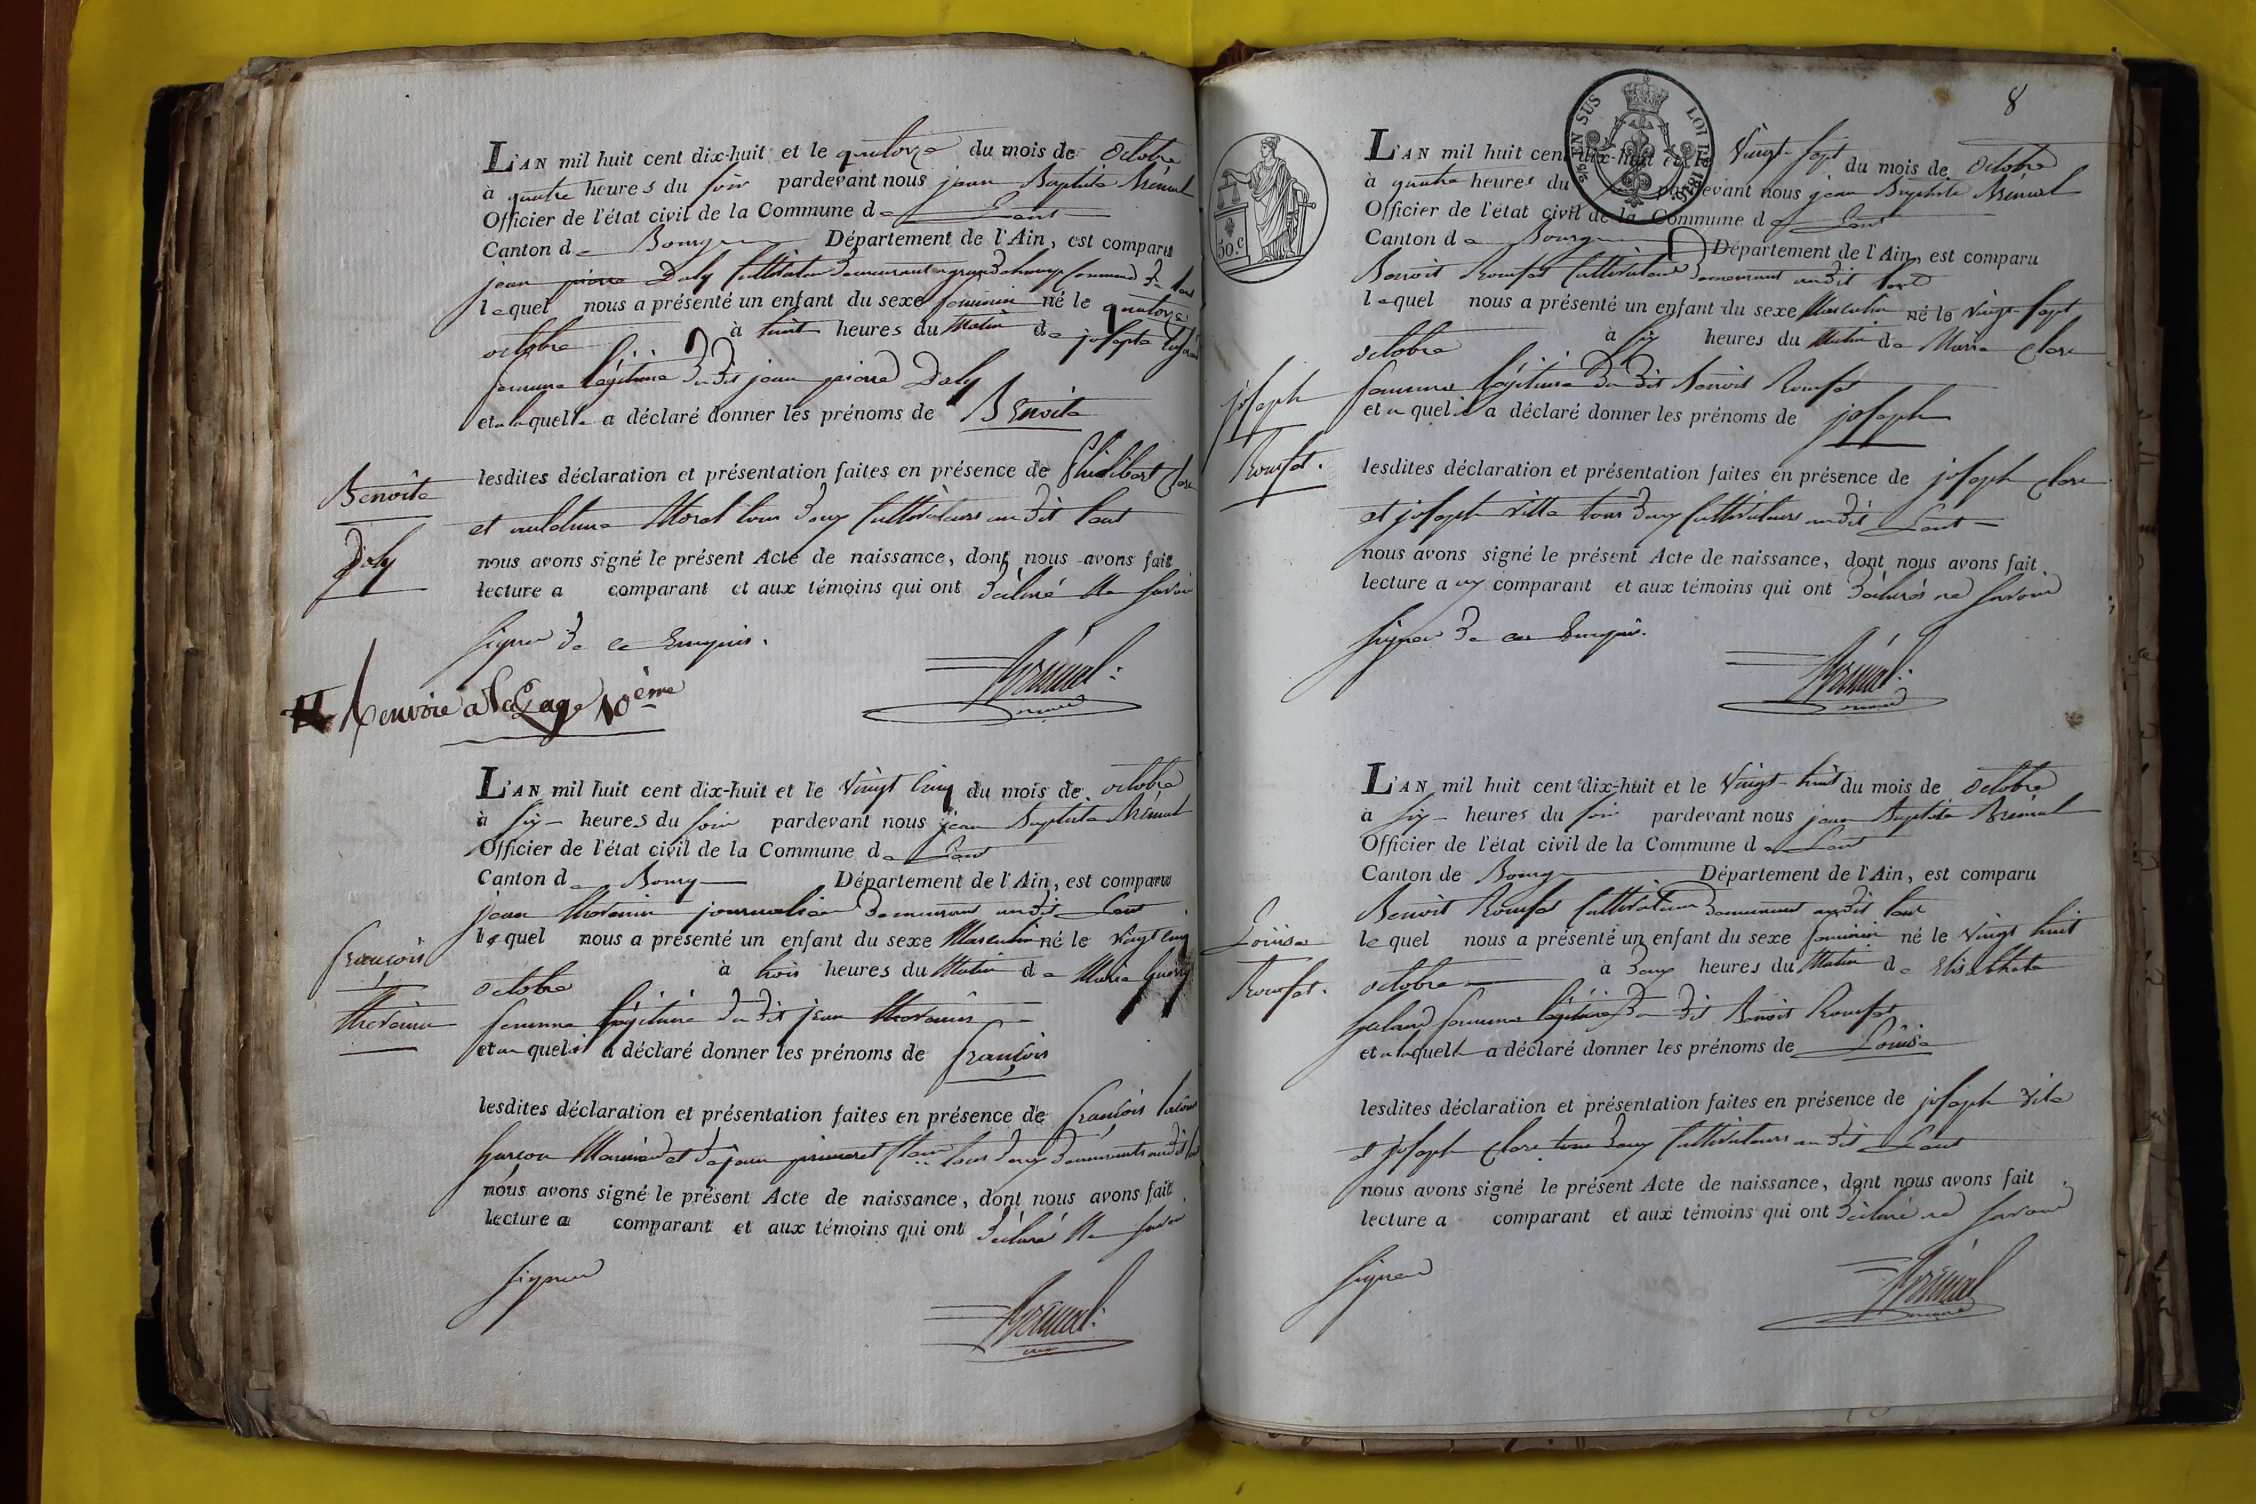 L'AN mil huit cent dix-huit et le quatorze du mois de octobre
à quatre heures du soir pardevant nous jean Baptiste Brénal
Officier de l'état civil de la Commune de
Canton de Bourg Département de l'Ain, est comparu
jean pierre Daly Cultivateur demeurant
lequel nous a présenté un enfant du sexe feminin né le quatorze
octobre à huit heures du Matin de josepte
femme légitime du dit jean pierre Daly
et a laquelle a déclaré donner les prénoms de Benoite
Benoite
Daly
lesdites déclaration et présentation faites en présence de Clare
et Morel tous deux Cultivateurs au dit
nous avons signé le présent Acte de naissance, dont nous avons fait
lecture a comparant et aux témoins qui ont déclaré Ne savoir
signer de ce Enquis.
Renvoie a La Page 10ème
L'AN mil huit cent dix-huit et le Vingt Cinq du mois de octobre
à six heures du soir pardevant nous jean Baptiste Brénal
Officier de l'état civil de la Commune de
Canton de Bourg Département de l'Ain, est comparu
jean thevenin journalier demeurant au dit
lequel nous a présenté un enfant du sexe Masculin né le Vingt Cinq
octobre à trois heures du Matin de Marie
françois
thevenin
femme légitime du dit jean thevenin
et au quel il a déclaré donner les prénoms de françois
lesdites déclaration et présentation faites en présence de françois
garçon et tous deux demeurants au dit
nous avons signé le présent Acte de naissance, dont nous avons fait
lecture a comparant et aux témoins qui ont déclaré Ne savoir
signer
8
TIMB. EN SUS
LOI DE 1816.
50.c
L'AN mil huit cent dix-huit et le Vingt-sept du mois de Octobre
à quatre heures du pardevant nous jean Baptiste Brénal
Officier de l'état civil de la Commune de
Canton de Bourg Département de l'Ain, est comparu
Benoit Rouffat Cultivateur demeurant au dit
lequel nous a présenté un enfant du sexe Masculin né le Vingt-sept
octobre à six heures du Matin de Marie Clare
joseph
Rouffat.
femme légitime du dit Benoit Rouffat
et au quel il a déclaré donner les prénoms de joseph
lesdites déclaration et présentation faites en présence de joseph Clare
et joseph Ville tous deux Cultivateurs au dit
nous avons signé le présent Acte de naissance, dont nous avons fait
lecture a ux comparant et aux témoins qui ont déclarés ne savoir
signer de ce Enquis.
L'AN mil huit cent dix-huit et le Vingt-huit du mois de octobre
à six heures du soir pardevant nous jean Baptiste Brénal
Officier de l'état civil de la Commune de
Canton de Bourg Département de l'Ain, est comparu
Benoit Rouffat Cultivateur demeurant au dit
lequel nous a présenté un enfant du sexe feminin né le Vingt huit
octobre à deux heures du Matin de Elisabhete
Louise
Rouffat.
femme légitime du dit Benoit Rouffat
et a laquelle a déclaré donner les prénoms de Louise
lesdites déclaration et présentation faites en présence de joseph Vile
et joseph Clare tous deux Cultivateurs au dit
nous avons signé le présent Acte de naissance, dont nous avons fait
lecture a comparant et aux témoins qui ont déclaré ne savoir
signer